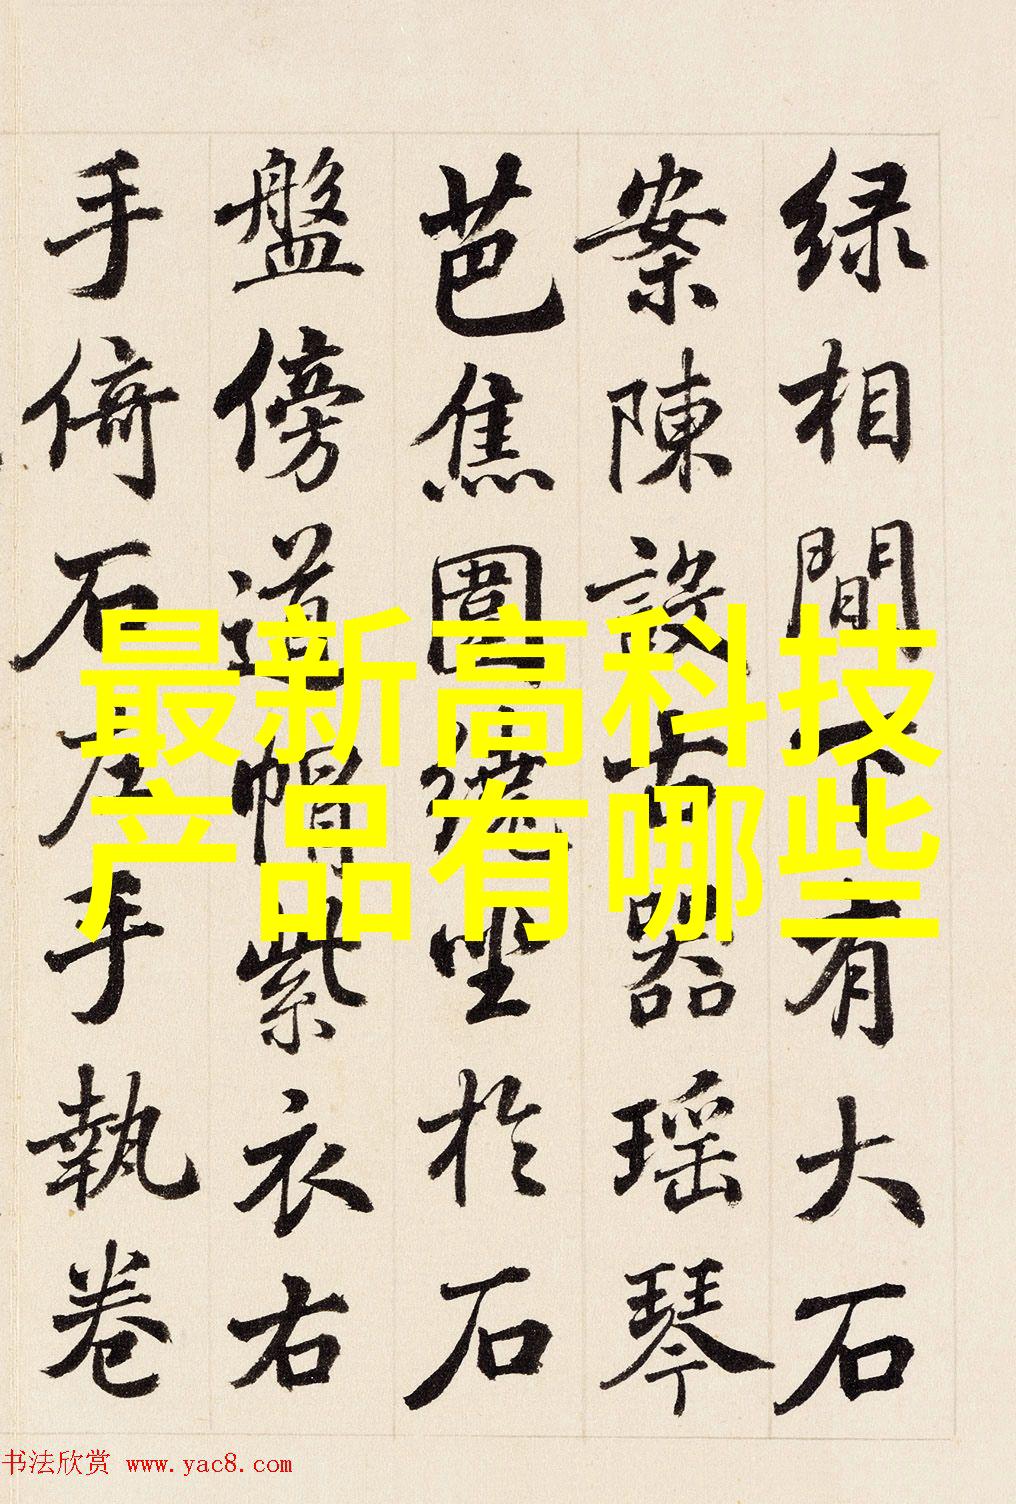 绿相間下有大石
案陳設古器瑶琴
芭焦圍繞坐於石
盤傍道帽紫衣右
手倚石左手執卷
最新高科技
产品有哪些
书法欣赏 www.yac8.com